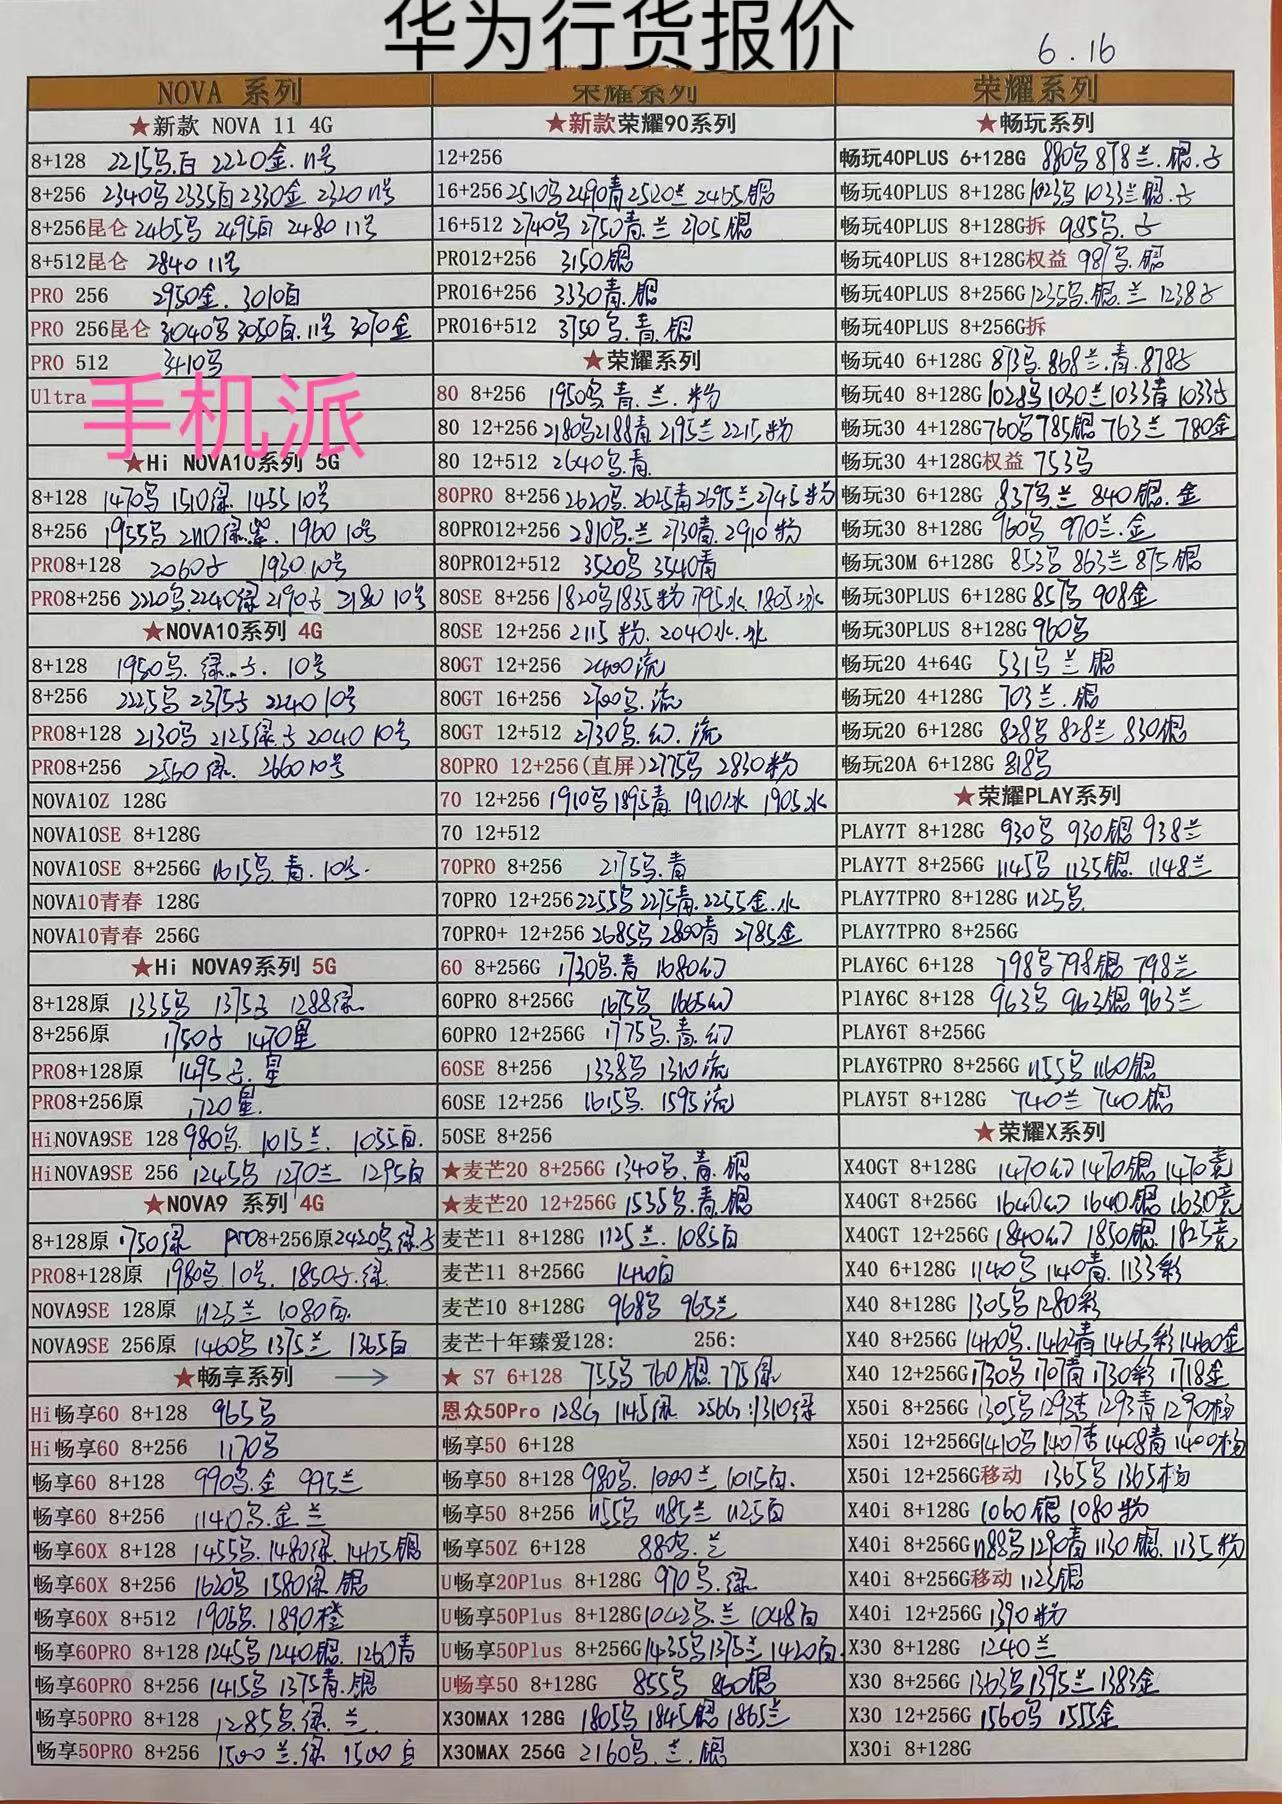 华为行货报价
6.16
NOVA 系列
★新款 NOVA 11 4G
8+128 2215乌.白 2220金.11号
8+256 2340乌 2335白 2330金 2320 11号
8+256昆仑 2465乌 2495白 2480 11号
8+512昆仑 2840 11号
PRO 256 2950金. 3010白
PRO 256昆仑 3040乌 3050白.11号 3070金
PRO 512 3410乌
Ultra
手机派
★Hi NOVA10系列 5G
8+128 1470乌 1510绿. 1455 10号
8+256 1955乌 2110绿.紫. 1960 10号
PRO8+128 2060子 1930.10号
PRO8+256 2220乌.2240绿 2190子 2180 10号
★NOVA10系列 4G
8+128 1950乌. 绿.子. 10号
8+256 2225乌 2375子 2240 10号
PRO8+128 2130乌 2125绿.子 2040 10号
PRO8+256 2560绿. 2660 10号
NOVA10Z 128G
NOVA10SE 8+128G
NOVA10SE 8+256G 1615乌.青.10号.
NOVA10青春 128G
NOVA10青春 256G
★Hi NOVA9系列 5G
8+128原 1335乌 1375子 1288绿.
8+256原 1750子 1470星
PRO8+128原 1495子.星
PRO8+256原 1720星.
HiNOVA9SE 128 980乌. 1015兰. 1055白.
HiNOVA9SE 256 1245乌 1270兰 1295白
★NOVA9 系列 4G
8+128原 1750绿 pro8+256原2420乌.绿.子
PRO8+128原 1980乌.10号. 1850子.绿.
NOVA9SE 128原 1125兰 1080白.
NOVA9SE 256原 1460乌 1375兰 1365白
★畅享系列 →
Hi畅享60 8+128 965乌
Hi畅享60 8+256 1170乌
畅享60 8+128 990乌.金 995兰
畅享60 8+256 1140乌.金 兰
畅享60X 8+128 1455乌.1480绿. 1465银
畅享60X 8+256 1620乌 1580绿 银
畅享60X 8+512 1905乌. 1890橙
畅享60PRO 8+128 1245乌 1240银. 1260青
畅享60PRO 8+256 1415乌 1375青.银
畅享50PRO 8+128 1285乌.绿.兰.
畅享50PRO 8+256 1500兰.绿 1500白
荣耀系列
★新款荣耀90系列
12+256
16+256 2510乌 2490青 2520兰 2465.银
16+512 2740乌 2750青.兰 2705银
PRO12+256 3150银
PRO16+256 3330青.银
PRO16+512 3750乌.青.银
★荣耀系列
80 8+256 1950乌 青.兰.粉
80 12+256 2180乌 2188青 2195兰 2215粉
80 12+512 2640乌.青.
80PRO 8+256 2620乌. 2625青 2695兰 2745粉
80PRO12+256 2810乌.兰 2730青. 2910粉
80PRO12+512 3520乌 3540青
80SE 8+256 1820乌 1835粉 1795水. 1805冰
80SE 12+256 2115粉. 2040水.冰
80GT 12+256 2400流
80GT 16+256 2700乌.流
80GT 12+512 2730乌.幻.流
80PRO 12+256(直屏)2775乌 2830粉
70 12+256 1910乌 1895青. 1910冰 1905水
70 12+512
70PRO 8+256 2175乌.青
70PRO 12+256 2255乌 2275青.2255金.水
70PRO+ 12+256 2685乌 2800青 2785金
60 8+256G 1730乌.青 1680幻
60PRO 8+256G 1675乌 1665幻
60PRO 12+256G 1775乌.青.幻
60SE 8+256 1338乌 1310流
60SE 12+256 1615乌. 1595流
50SE 8+256
★麦芒20 8+256G 1340乌.青.银
★麦芒20 12+256G 1535乌.青.银
麦芒11 8+128G 1125兰. 1085白
麦芒11 8+256G 1410白
麦芒10 8+128G 968乌 965兰
麦芒十年臻爱128: 256:
★ S7 6+128 755乌 760银.775绿
恩众50Pro 128G 1145绿. 256G:1310绿
畅享50 6+128
畅享50 8+128 980乌. 1000兰 1015白.
畅享50 8+256 1155乌 1185兰 1125白
畅享50Z 6+128 880乌.兰
U畅享20Plus 8+128G 970乌.绿
U畅享50Plus 8+128G 1042乌.兰 1048白
U畅享50Plus 8+256G 1435乌 1375兰 1420白.
U畅享50 8+128G 855乌 860银
X30MAX 128G 1805乌 1845银 1865兰
X30MAX 256G 2160乌.兰.银
荣耀系列
★畅玩系列
畅玩40PLUS 6+128G 880乌 878兰.银.子
畅玩40PLUS 8+128G 1023乌 1033兰 银.子
畅玩40PLUS 8+128G拆 985乌.子
畅玩40PLUS 8+128G权益 981乌.银
畅玩40PLUS 8+256G 1235乌.银.兰 1238子
畅玩40PLUS 8+256G拆
畅玩40 6+128G 873乌.868兰.青.878子
畅玩40 8+128G 1028乌 1030兰 1033青 1033子
畅玩30 4+128G 760乌 785银 763兰 780金
畅玩30 4+128G权益 753乌
畅玩30 6+128G 837乌.兰 840银.金
畅玩30 8+128G 960乌 970兰.金
畅玩30M 6+128G 853乌 863兰 875银
畅玩30PLUS 6+128G 857乌 908金
畅玩30PLUS 8+128G 960乌
畅玩20 4+64G 531乌 兰 银
畅玩20 4+128G 703兰.银
畅玩20 6+128G 828乌 828兰 830银
畅玩20A 6+128G 818乌
★荣耀PLAY系列
PLAY7T 8+128G 930乌 930银 938兰
PLAY7T 8+256G 1145乌 1135银. 1148兰
PLAY7TPRO 8+128G 1125乌
PLAY7TPRO 8+256G
PLAY6C 6+128 798乌 798银 798兰
PlAY6C 8+128 963乌 963银 963兰
PLAY6T 8+256G
PLAY6TPRO 8+256G 1155乌 1160银
PLAY5T 8+128G 740兰 740银
★荣耀X系列
X40GT 8+128G 1470幻 1470银 1470竞
X40GT 8+256G 1640幻 1640银 1630竞
X40GT 12+256G 1840幻 1850银. 1825竞
X40 6+128G 1140乌 1140青. 1133彩
X40 8+128G 1305乌 1280彩
X40 8+256G 1460乌.1462青 1465彩 1460金
X40 12+256G 1730乌 1707青 1730彩 1718金
X50i 8+256G 1305乌 1293杏 1293青 1290杨
X50i 12+256G 1410乌 1407杏 1408青 1400杨
X50i 12+256G移动 1365乌 1365杨
X40i 8+128G 1060银 1080粉
X40i 8+256G 1188乌 1290青 1130银. 1135粉
X40i 8+256G移动 1123银
X40i 12+256G 1390粉
X30 8+128G 1240兰
X30 8+256G 1363乌 1395兰 1383金
X30 12+256G 1560乌 1555金
X30i 8+128G